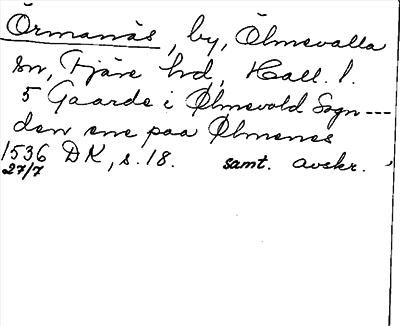 Örmanäs, by, Ölmevalla
sn, Fjäre hd, Hall. l.
5 Gaarde i Ølmevold Sogn ---
den ene paa Ølmenes
1536 DK, s. 18. samt. avskr.
27/7